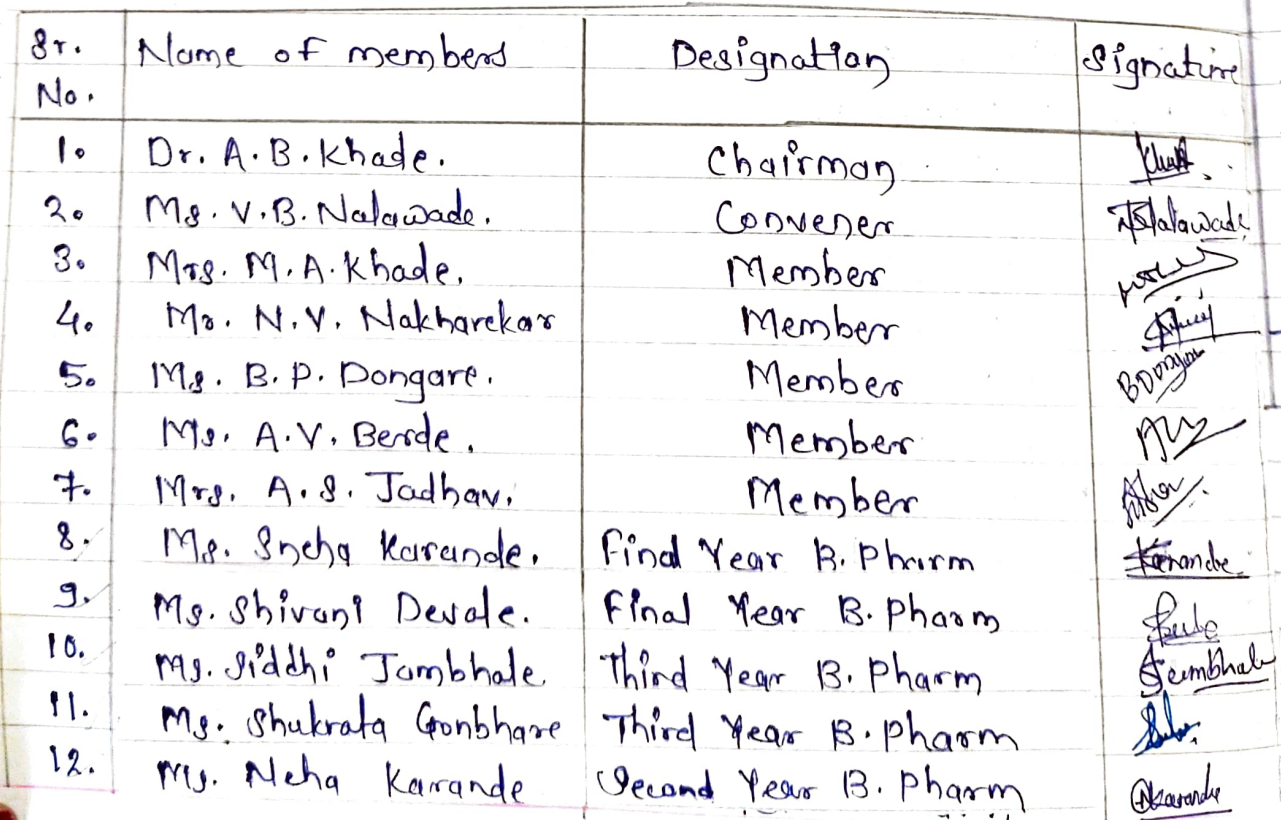 Sr. No. Name of members Designation Signature
1. Dr. A.B. Khade. Chairman
2. Ms. V.B. Nalawade. Convener Nalawade
3. Mrs. M.A. Khade. Member
4. Mr. N.V. Nakharekar Member
5. Ms. B.P. Dongare. Member BDongare
6. Ms. A.V. Berde. Member
7. Mrs. A.S. Jadhav. Member
8. Ms. Sneha Karande. Final Year B. Pharm Karande
9. Ms. Shivani Devale. Final Year B. Pharm
10. Ms. Siddhi Jambhale Third Year B. Pharm Jambhale
11. Ms. Shukrata Gonbhare Third Year B. Pharm
12. Ms. Neha Karande Second Year B. Pharm NKarande